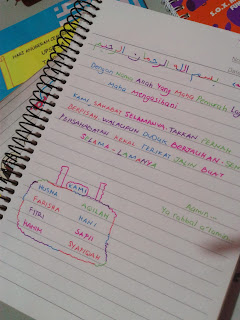 بسم الله الرحمن الرحيم
Dengan Nama Allah Yang Maha Pemurah lagi
Maha Mengasihani
KAMI, SAHABAT SELAMANYA. TAKKAN PERNAH
BERPISAH WALAUPUN DUDUK BERJAUHAN.
PERSAHABATAN KEKAL TERIKAT JALIN BUAT
SELAMA-LAMANYA
KAMI
HUSNA
FARISHA
AQILAH
FITRI
HANI
HANIM
SAFI
SYAFIQAH
Aamin
Ya Rabbal 'alamin